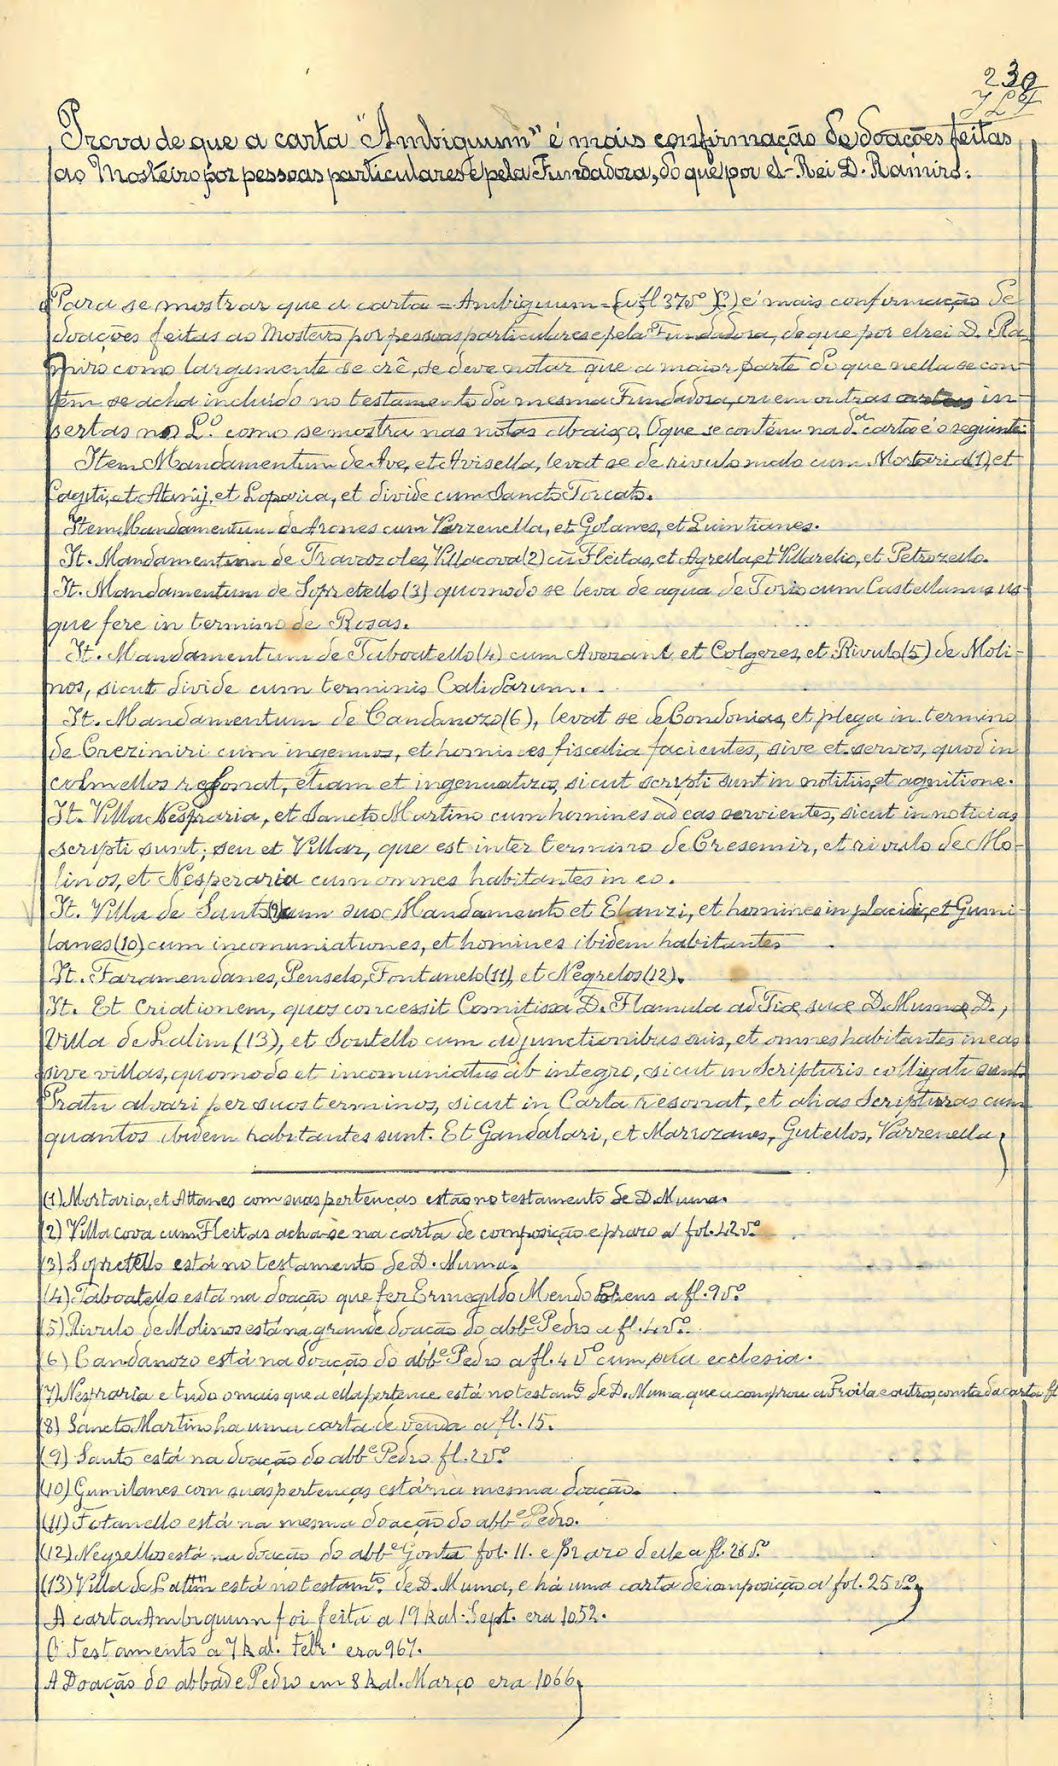 239
Prova de que a carta "Ambiguum" é mais confirmação de doações feitas
ao Mosteiro por pessoas particulares e pela Fundadora, do que por el-Rei D. Ramiro.
Para se mostrar que a carta = Ambiguum = (a fl 37 vº) é mais confirmação de
doações feitas ao Mosteiro por pessoas particulares e pela Fundadora, do que por elrei D. Ra-
miro como largamente se crê, se deve notar que a maior parte do que nella se con-
tém se acha incluido no testamento da mesma Fundadora, ou em outras cartas in-
sertas no Lº. como se mostra nas notas abaixo. O que se contém na dª carta é o seguinte:
Item Mandamentum de Ave, et Avisella, levat se de rivulo malo cum Mortaria (1) et
et Atanij, et Loparia, et divide cum Sancto Torcato.
Item Mandamentum de Arones cum Varzenella, et Golanes, et Quintianes.
It. Mandamentum de Travazoles, Villacova (2) cũ Fleitas, et Agrella, et Villarelio, et Petrozello.
It. Mandamentum de Sopretello (3) quomodo se leva de aqua de Torio cum Castellanus us-
que fere in termino de Rosas.
It. Mandamentum de Taboatello (4) cum Averant et Colgeres, et Rivulo (5) de Moli-
nos, sicut divide cum terminis Calidarum.
It. Mandamentum de Candanozo (6), levat se de Condonias, et plega in termino
de Crezimiri cum ingenuos, et homines fiscalia facientes, sive et servos, quod in
colmellos resonat, etiam et ingenuatros, sicut scripti sunt in notitiis, et agnitione.
It. Villa Nespraria, et Sancto Martino cum homines ad eas servientes, sicut in noticias
scripti sunt; seu et Villar, que est inter termino de Cresemir, et rivulo de Mo-
linos, et Nesperaria cum omnes habitantes in eo.
It. Villa de Santo (9) cum suo Mandamento et Elanzi, et homines in placidi, et Gumi-
lanes (10) cum incomuniationes, et homines ibidem habitantes
It. Faramendanes, Penselo, Fontanelo (11), et Negrelos (12).
It. Et Criationem, quos concessit Comitissa D. Flamula ad Tiæ suæ D. Muma D.,
Villa de Lalim (13), et Soutello cum adjunctionibus suis, et omnes habitantes in eas
sive villas, quomodo et incomuniatus ab integro, sicut in Scripturis colligati sunt.
Pratu alvari per suos terminos, sicut in Carta resonat, et alias Scripturas cum
quantos ibidem habitantes sunt. Et Gandalari, et Marrozanes, Gutellos, Varrenella
(1) Mortaria, et Attanes com suas pertenças estão no testamento de D. Muma.
(2) Villa cova cum Fleitas acha-se na carta de composição e prazo a fol. 42 vº
(3) Sopretello está no testamento de D. Muma.
(4) Taboatello está na doação que fez Ermegildo Mendo a fl. 9 vº
(5) Rivulo de Molinos está na grande doação do abbe Pedro a fl. 4 vº.
(6) Candanozo está na doação do abbe Pedro a fl. 4 vº cum sua ecclesia.
(7) Nespraria e tudo o mais que a ella pertence está no testamto de D. Muma que a comprou a Froila e outros, consta da carta fl
(8) Sancto Martino ha uma carta de venda a fl. 15.
(9) Santo está na doação do abbe Pedro fl. 2 vº
(10) Gumilanes com suas pertenças está na mesma doação.
(11) Fotanello está na mesma doação do abbe Pedro.
(12) Negrellos está na doação do abbe Gonta fol. 11. e prazo delle a fl. 26 vº
(13) Villa de Latim está no testamto. de D. Muma, e há uma carta de composição a fol. 25 vº
A carta Ambiguum foi feita a 19 kal. Sept. era 1052.
O Testamento a 7 kal. Febr. era 967.
A Doação do abbade Pedro em 8 kal. Março era 1066